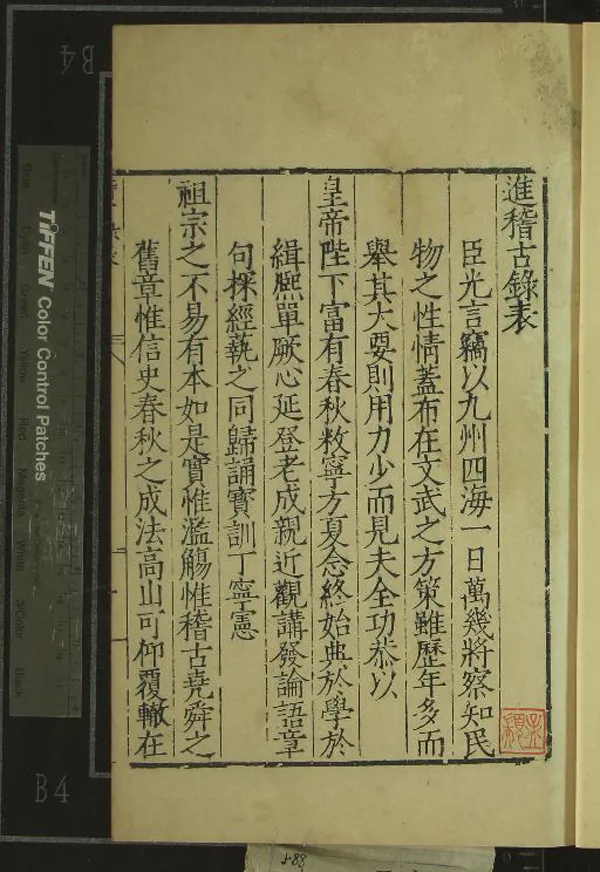 進稽古錄表
臣光言竊以九州四海一日萬幾將察知民
物之性情蓋布在文武之方策雖歷年多而
舉其大要則用力少而見夫全功恭以
皇帝陛下富有春秋敉寧方夏念終始典於學於
緝熈單厥心延登老成親近觀講發論語章
句探經蓺之同歸誦寶訓丁寧憲
祖宗之不易有本如是實惟濫觴惟稽古堯舜之
舊章惟信史春秋之成法高山可仰覆轍在
B4
B4
TIFFEN Color Control Patches
Blue
Cyan
Green
Yellow
Red
Magenta
White
3/Color
Black